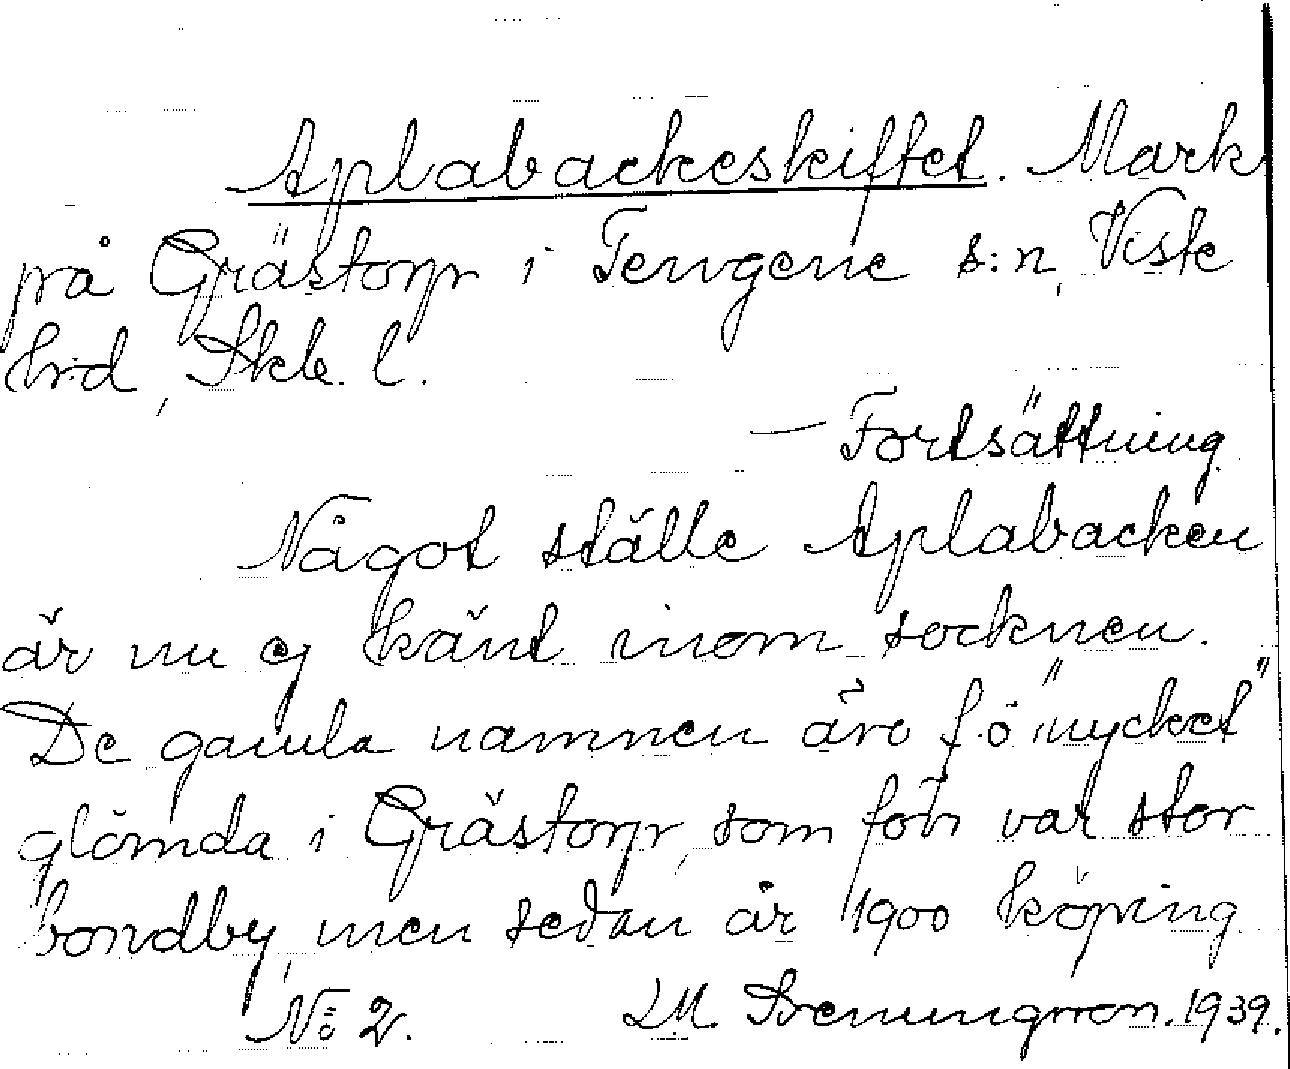 Aplabackeskiftet. Mark
på Grästorp i Tengene s:n, Viste
hrd, Skb. l.
— Fortsättning
Något ställe Aplabacken
är nu ej känt inom socknen.
De gamla namnen äro f. ö "mycket"
glömda i Grästorp, som förr var stor
bondby, men sedan år 1900 köping
No 2. 1939.